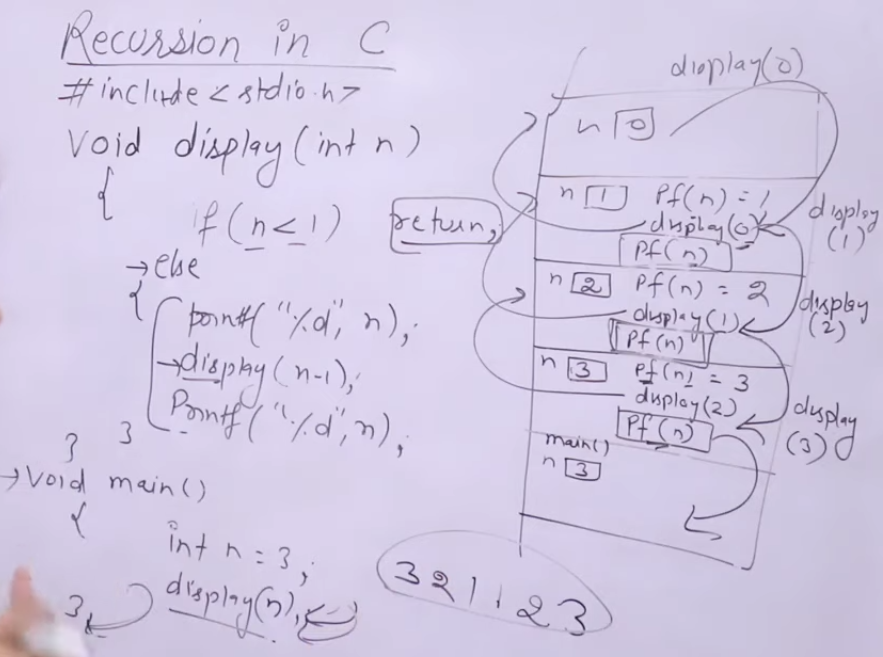 Recursion in C
#include<stdio.h>
void display(int n)
{
if(n<1) return;
→else
{ printf("%d", n);
→display(n-1);
Printf("%d", n);
} }
→void main()
{
int n = 3;
display(n);
}
display(0)
n 0
n 1 Pf(n) = 1
display(0)
Pf(n)
display
(1)
n 2 Pf(n) = 2
display(1)
Pf(n)
display
(2)
n 3 Pf(n) = 3
display(2)
Pf(n)
display
(3)
main()
n 3
3 2 1 1 2 3